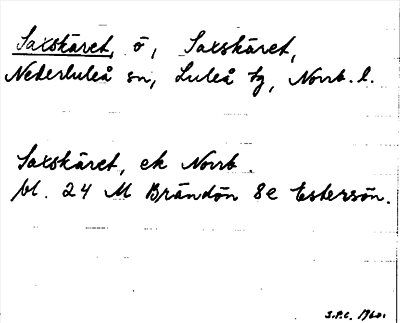 Saxskäret, ö, Saxskäret,
Nederluleå sn, Luleå tg, Norrb. l.
Saxskäret, ek Norrb.
bl. 24 M Brändön 8e Estersön.
S.P.C. 1960.